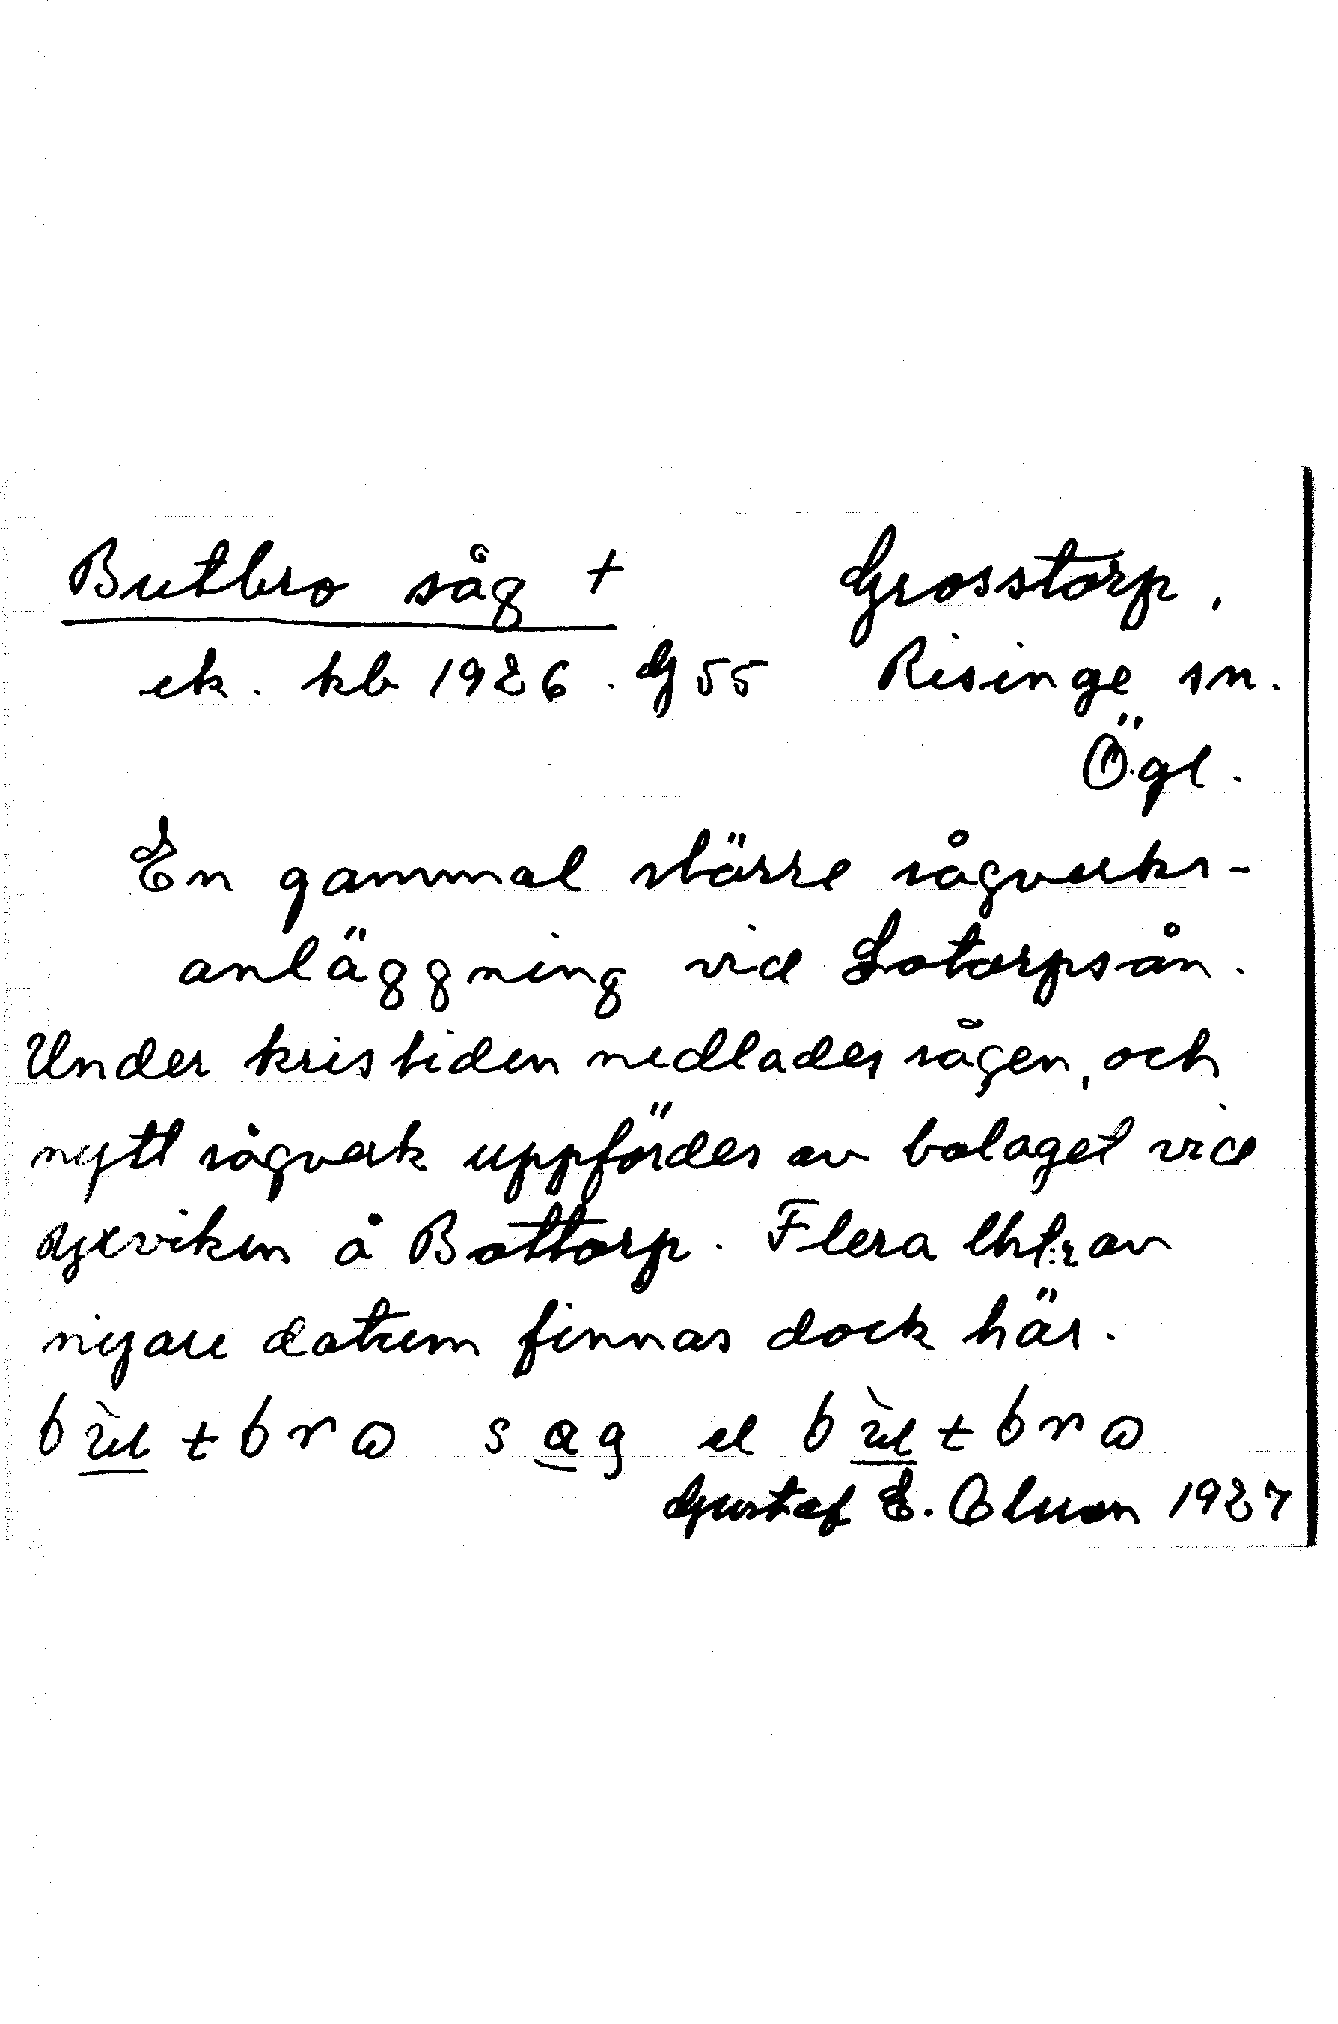 Butbro såg +
Grosstorp,
ek. kb 1926. G 55
Risinge sn.
Ögl.
En gammal större sågverks-
anläggning vid Lotorpsån.
Under kristiden nedlades sågen, och
nytt sågverk uppfördes av bolaget vid
Gäxviken å Bottorp. Flera lht:r av
nyare datum finnas dock här.
bùtbro såg el bùtbro
Gustaf E. Olsson 1927